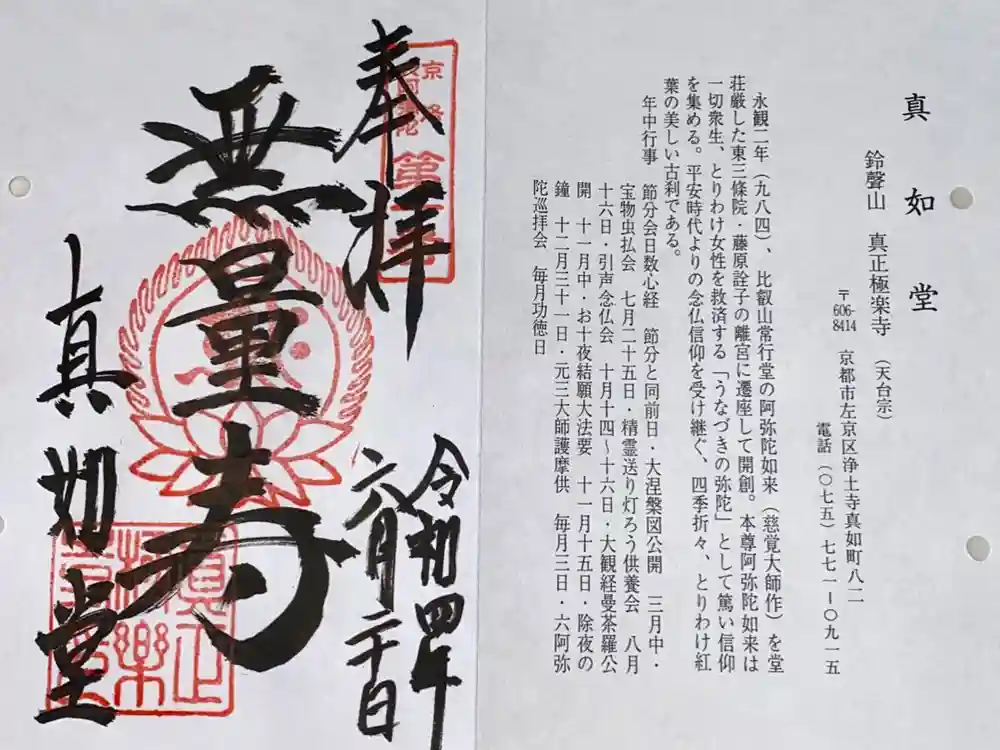 真如堂
鈴聲山 真正極楽寺(天台宗)
〒606-8414 京都市左京区浄土寺真如町八二
電話(〇七五)七七一ー〇九一五
永観二年(九八四)、比叡山常行堂の阿弥陀如来(慈覚大師作)を堂
荘厳した東三條院・藤原詮子の離宮に遷座して開創。本尊阿弥陀如来は
一切衆生、とりわけ女性を救済する「うなづきの弥陀」として篤い信仰
を集める。平安時代よりの念仏信仰を受け継ぐ、四季折々、とりわけ紅
葉の美しい古刹である。
年中行事 節分会日数心経 節分と同前日・大涅槃図公開 三月中・
宝物虫払会 七月二十五日・精霊送り灯ろう供養会 八月
十六日・引声念仏会 十月十四～十六日・大観経曼荼羅公
開 十一月中・お十夜結願大法要 十一月十五日・除夜の
鐘 十二月三十一日・元三大師護摩供 毎月三日・六阿弥
陀巡拝会 毎月功徳日
奉拝
令和四年
六月二十日
無量寿
真如堂